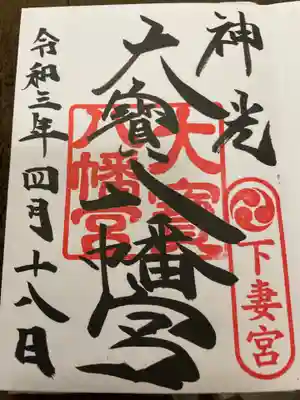 神光
下妻宮
大寳八幡宮
大寳八幡宮
令和三年四月十八日